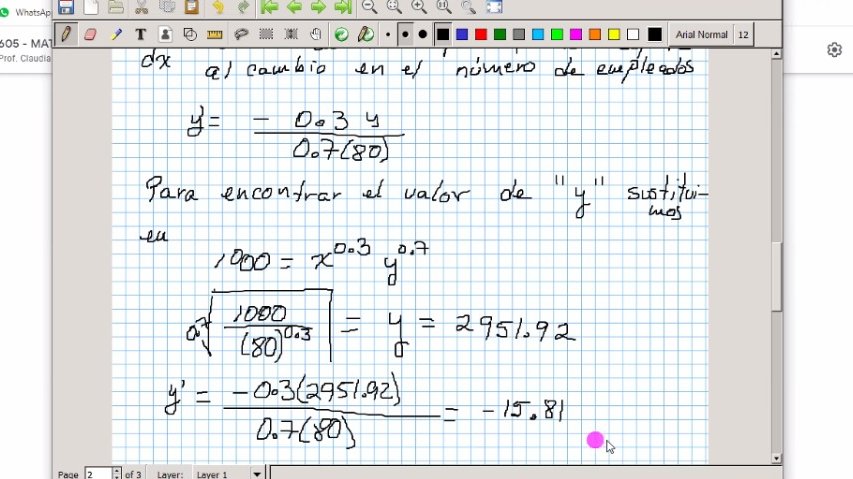 WhatsApp
605 - MAT
Prof. Claudia
Arial Normal 12
dx al cambio en el número de empleados
y' = - 0.3 y / 0.7(80)
Para encontrar el valor de "y" sustitui-
mos
en
1000 = x^0.3 y^0.7
0.7√(1000 / (80)^0.3) = y = 2951.92
y' = -0.3(2951.92) / 0.7(80) = -15.81
Page 2 of 3 Layer: Layer 1